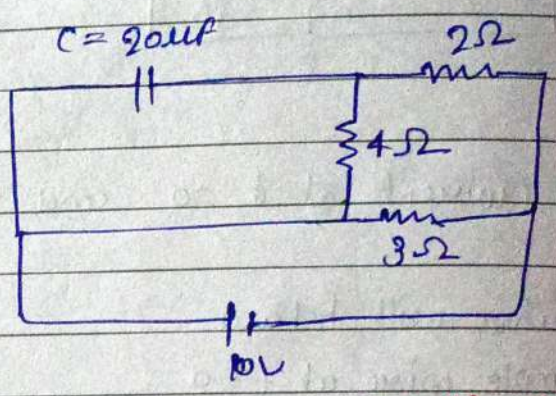 C = 20μF
2Ω
4Ω
3Ω
10V